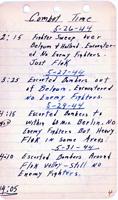 Combat Time
5-26-44
2:15 Fighter Sweep over
Belgium & Holland. Encountered
No Enemy Fighters.
Just Flak
5-27-44
3:35 Escorted Bombers out
of Belgium. Encountered
No Enemy Fighters.
5-29-44
4:15 Escorted Bombers to
within 60 mi. Berlin. No
Enemy Fighters But Heavy
Flak in some Areas.
5-31-44
Escorted Bombers Around
Valley - Still no
Enemy Fighters.
14:05